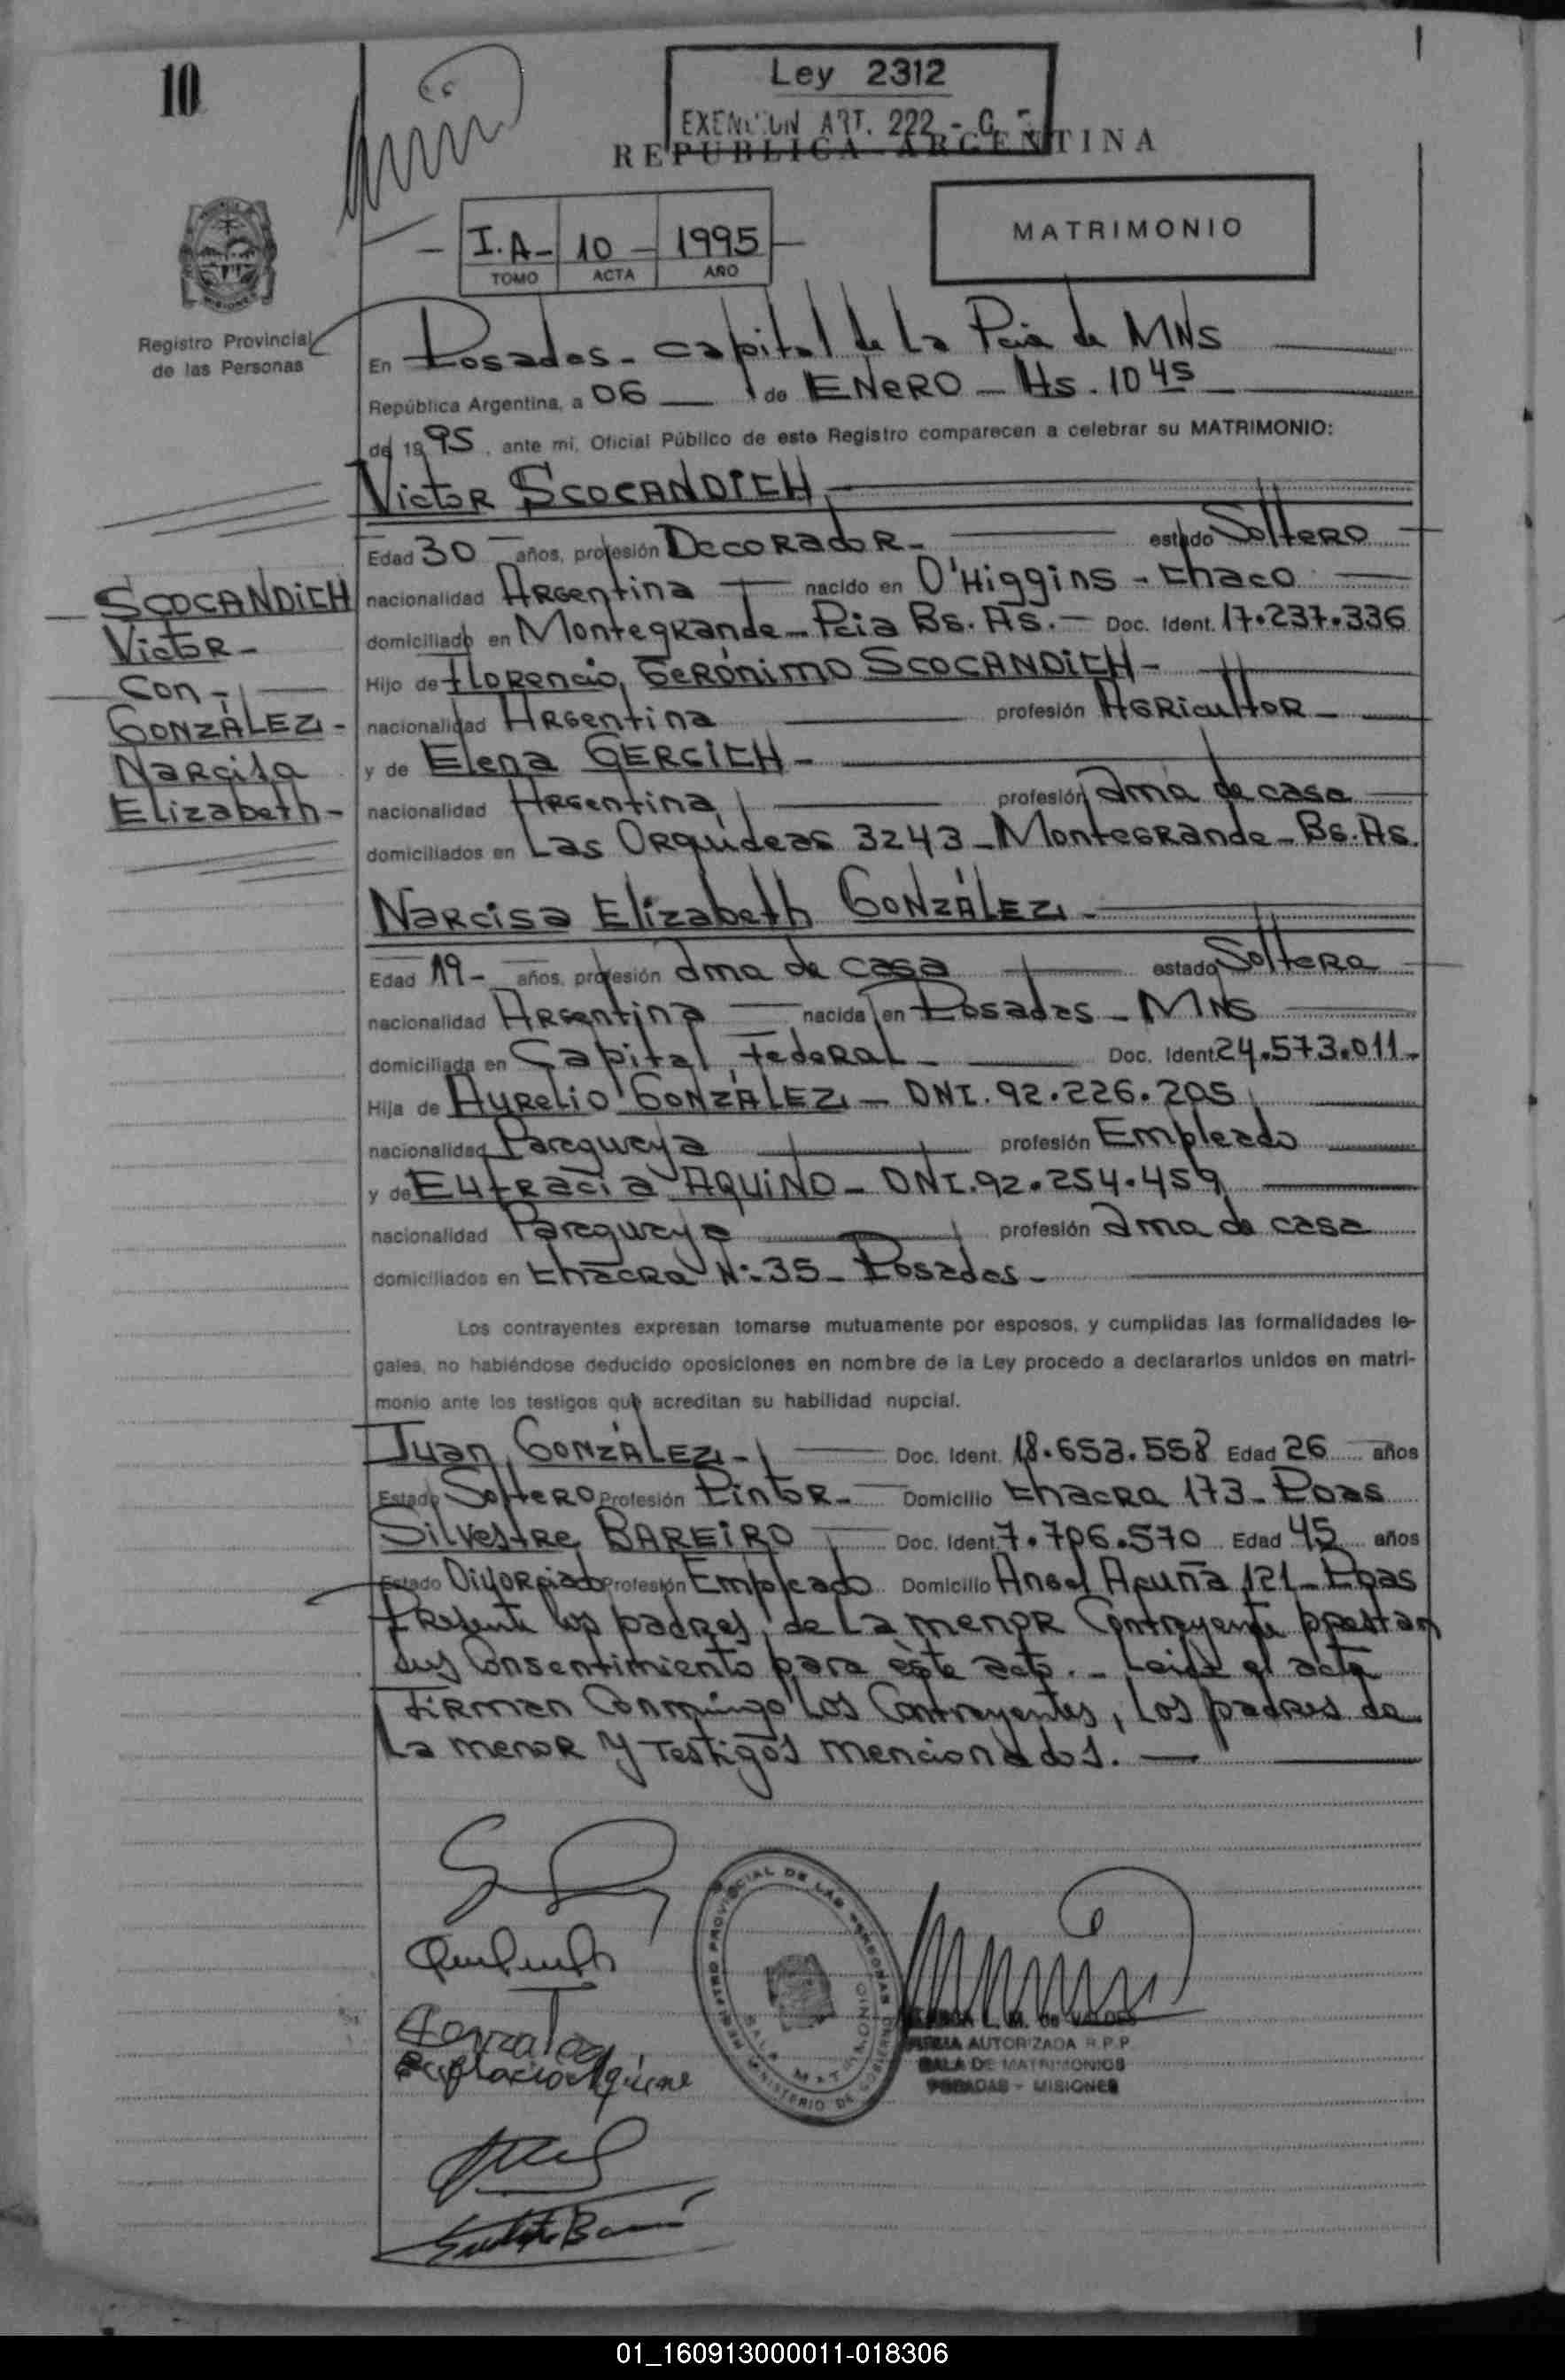 10
Ley 2312
EXENCION ART. 222 - C
REPUBLICA ARGENTINA
I.A- 10 - 1995
TOMO ACTA AÑO
MATRIMONIO
Registro Provincial
de las Personas
En Posadas - capital de La Pcia de MNS
República Argentina, a 06 de ENERO - Hs. 10 45
de 1995, ante mi, Oficial Público de este Registro comparecen a celebrar su MATRIMONIO:
Victor SCOCANDICH
Edad 30 años, profesión Decorador - estado Soltero
nacionalidad Argentina nacido en O'Higgins - Chaco
domiciliado en Montegrande - Pcia Bs. As. - Doc. Ident. 17.237.336
Hijo de Florencio Gerónimo SCOCANDICH -
nacionalidad Argentina profesión Agricultor -
y de Elena GERCICH -
nacionalidad Argentina profesión ama de casa
domiciliados en Las Orquídeas 3243 - Montegrande - Bs. As.
SCOCANDICH
Victor -
Con -
GONZÁLEZ -
Narcisa
Elizabeth -
Narcisa Elizabeth GONZÁLEZ -
Edad 19 - años, profesión ama de casa estado Soltera
nacionalidad Argentina nacida en Posadas - MNS
domiciliada en Capital Federal - Doc. Ident. 24.573.011 -
Hija de Aurelio GONZÁLEZ - DNI. 92.226.205
nacionalidad Paraguaya profesión Empleado
y de Eufracia AQUINO - DNI. 92.254.459
nacionalidad Paraguaya profesión ama de casa
domiciliados en Chacra N: 35 - Posadas -
Los contrayentes expresan tomarse mutuamente por esposos, y cumplidas las formalidades le-
gales, no habiéndose deducido oposiciones en nombre de la Ley procedo a declararlos unidos en matri-
monio ante los testigos que acreditan su habilidad nupcial.
Juan GONZÁLEZ - Doc. Ident. 18.653.558 Edad 26 años
Estado Soltero Profesión Pintor - Domicilio Chacra 173 - Pdas
Silvestre BAREIRO Doc. Ident. 7.706.570 Edad 45 años
Estado Divorciado Profesión Empleado Domicilio Angel Acuña 121 - Pdas
Presente los padres de La menor Contrayente prestan
sus Consentimiento para éste acto. - Leida el acta
Firman Conmigo Los Contrayentes, Los padres de
La menor y Testigos mencionados. -
REGISTRO PROVINCIAL DE LAS PERSONAS
SALA MATRIMONIO
MINISTERIO DE GOBIERNO
L. M. de VALDES
FIRMA AUTORIZADA R.P.P.
SALA DE MATRIMONIOS
POSADAS - MISIONES
01_160913000011-018306